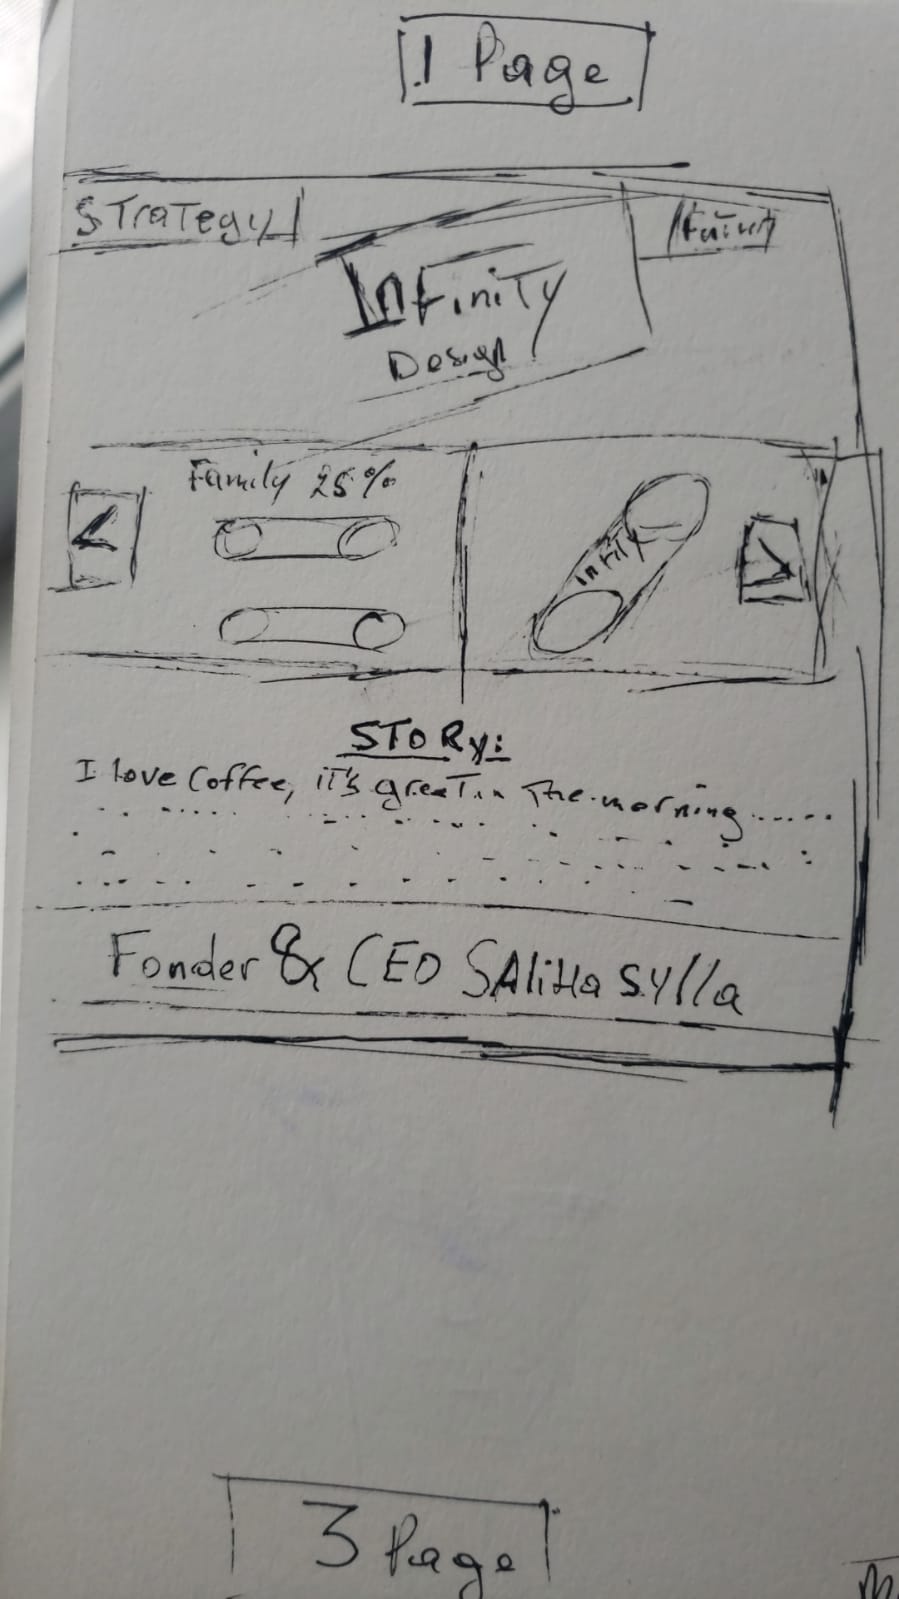 1 Page
STRaTegy
InfiniTy
Design
Family 25%
<
>
STORy:
I love Coffee, iT's greaT in The morning......
Fonder & CEO SAlitta Sylla
3 Page